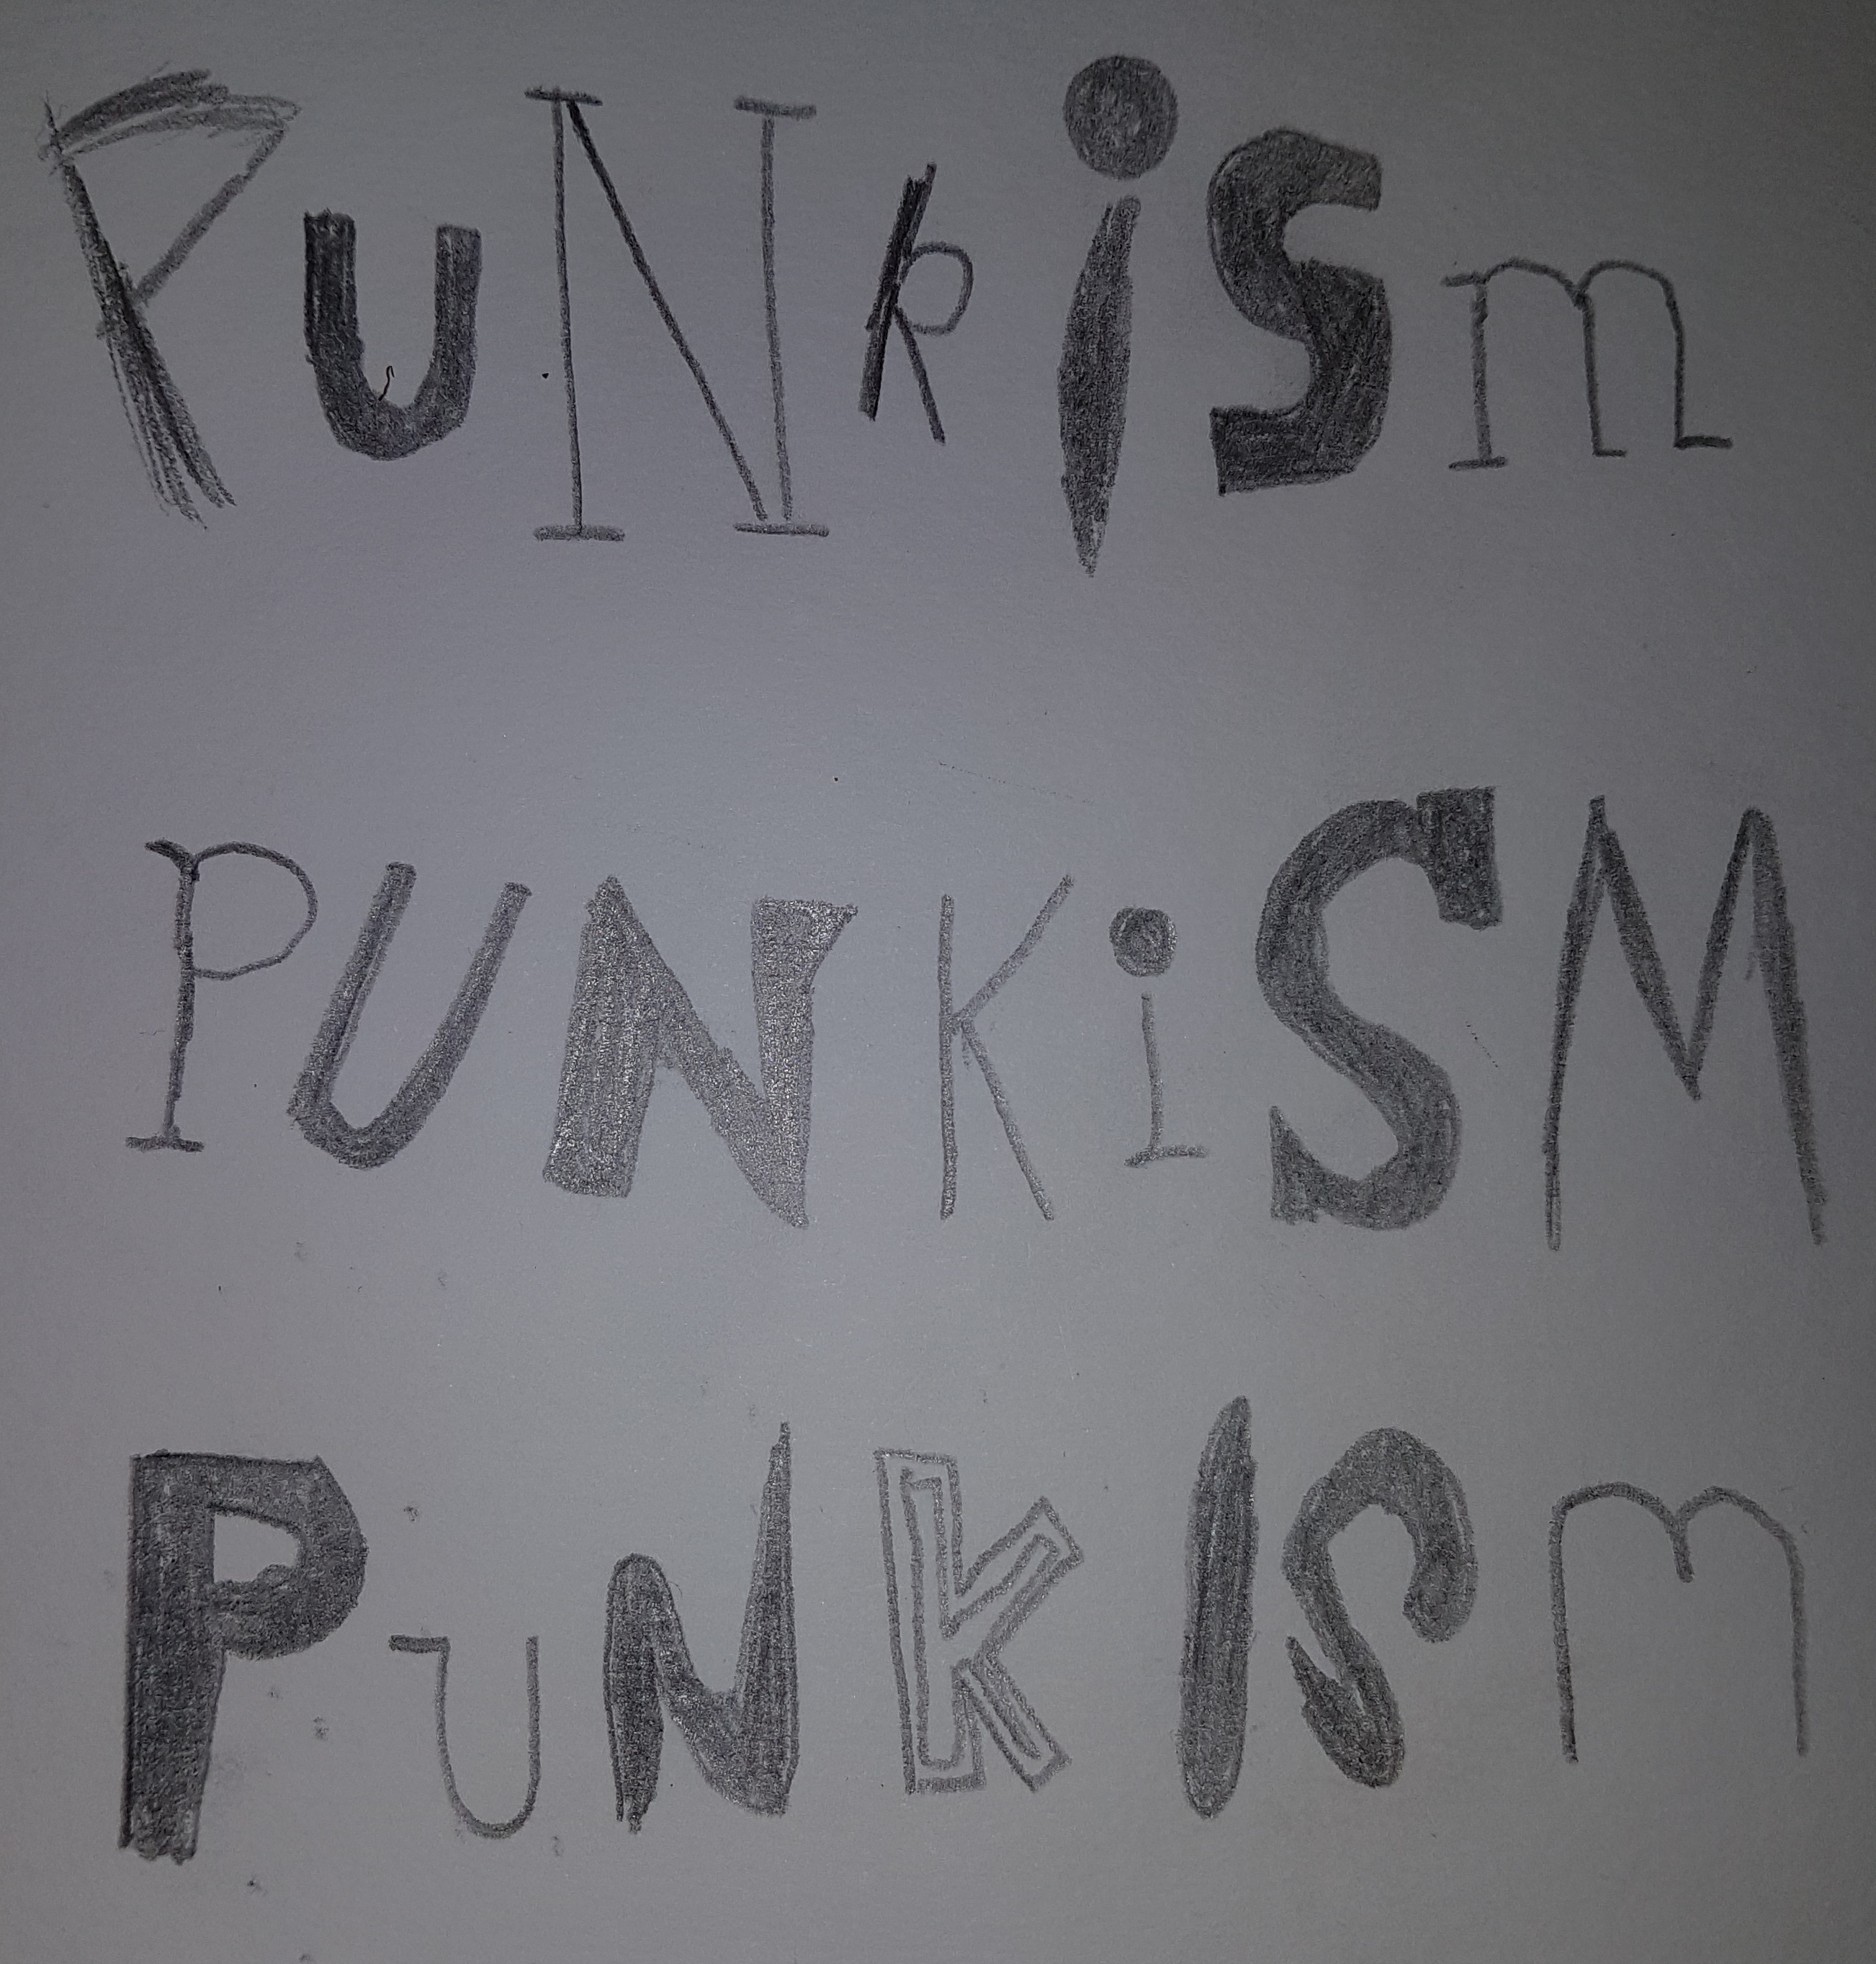 PuNkiSm
PUNKiSM
PuNkISm